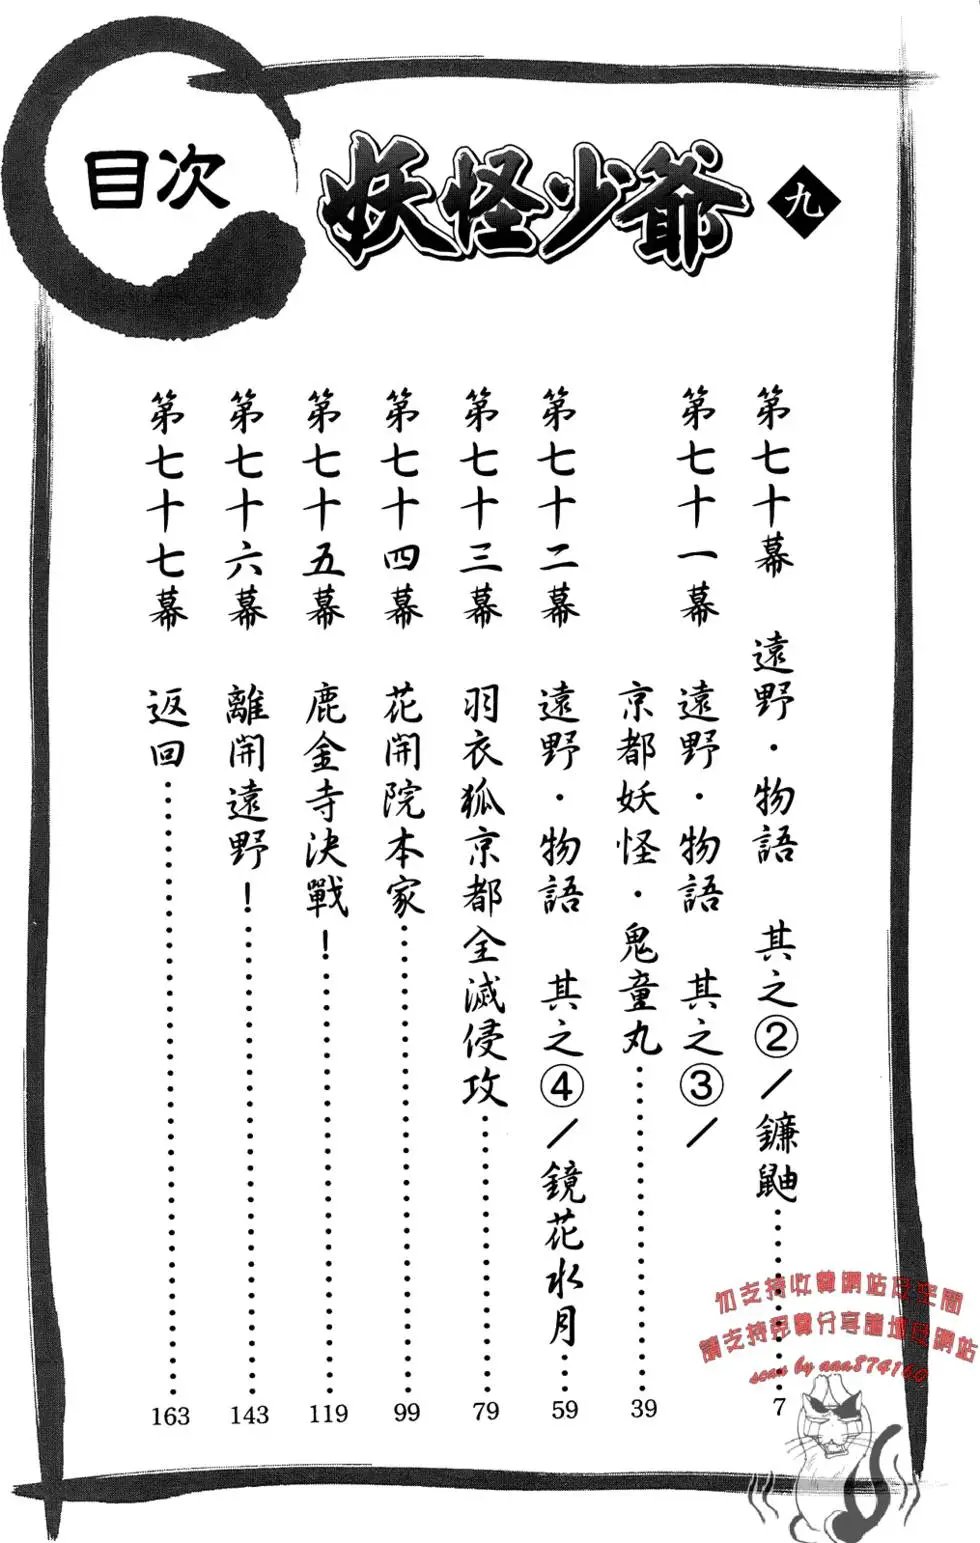 目次
妖怪少爺 九
第七十幕 遠野・物語 其之②／鐮鼬……7
第七十一幕 遠野・物語 其之③／
京都妖怪・鬼童丸……39
第七十二幕 遠野・物語 其之④／鏡花水月……59
第七十三幕 羽衣狐京都全滅侵攻……79
第七十四幕 花開院本家……99
第七十五幕 鹿金寺決戰！……119
第七十六幕 離開遠野！……143
第七十七幕 返回……163
勿支持收費網站及空間
請支持免費分享論壇或網站
scan by ana874160